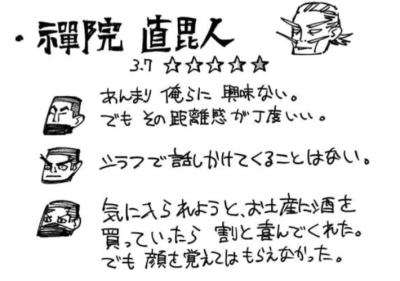 ・禪院 直毘人
3.7 ☆☆☆☆☆
あんまり 俺らに 興味ない。
でも その距離感が丁度いい。
シラフで話しかけてくることはない。
気に入られようと、お土産に酒を
買っていったら 割と喜んでくれた。
でも 顔を覚えてはもらえなかった。